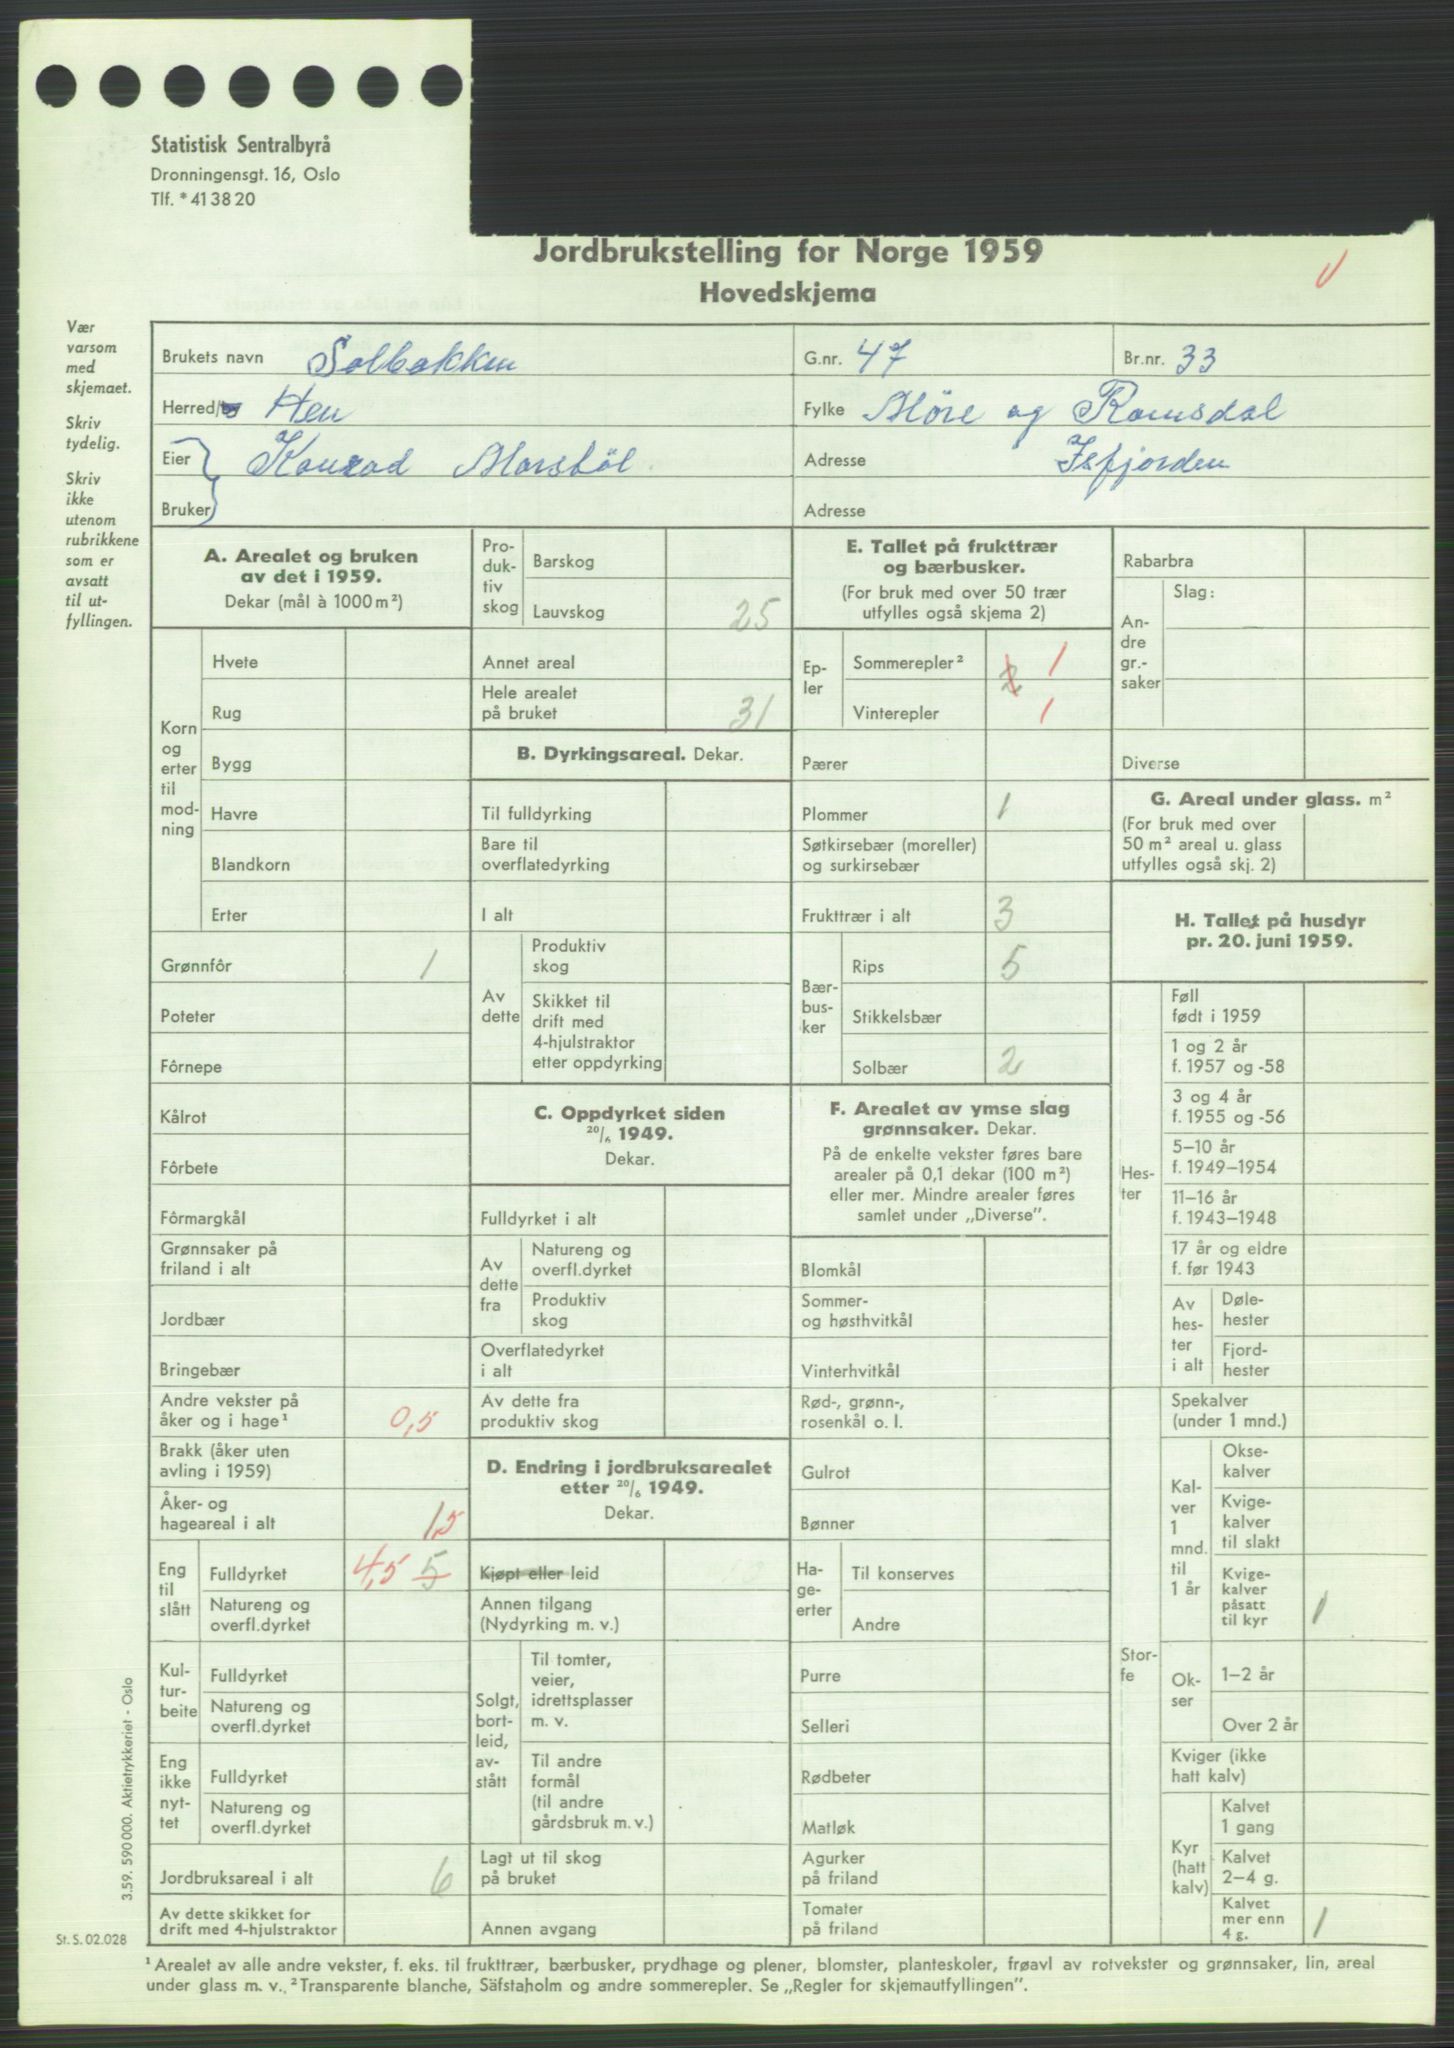 Statistisk Sentralbyrå
Dronningensgt. 16, Oslo
Tlf. * 41 38 20
Jordbrukstelling for Norge 1959
Hovedskjema
Vær
varsom
med
skjemaet.
Skriv
tydelig.
Skriv
ikke
utenom
rubrikkene
som er
avsatt
til ut-
fyllingen.
Brukets navn Solbakken G.nr. 47 Br.nr. 33
Herred/ Hen Fylke Møre og Romsdal
Eier Konrad Marstøl Adresse Isfjorden
Bruker Adresse
A. Arealet og bruken
av det i 1959.
Dekar (mål à 1000 m²)
Korn
og
erter
til
mod-
ning
Hvete
Rug
Bygg
Havre
Blandkorn
Erter
Grønnfôr 1
Poteter
Fôrnepe
Kålrot
Fôrbete
Fôrmargkål
Grønnsaker på
friland i alt
Jordbær
Bringebær
Andre vekster på
åker og i hage¹ 0,5
Brakk (åker uten
avling i 1959)
Åker- og
hageareal i alt 1,5
Eng
til
slått
Fulldyrket 4,5 5
Natureng og
overfl.dyrket
Kul-
tur-
beite
Fulldyrket
Natureng og
overfl.dyrket
Eng
ikke
nyt-
tet
Fulldyrket
Natureng og
overfl.dyrket
Jordbruksareal i alt 6
Av dette skikket for
drift med 4-hjulstraktor
Pro-
duk-
tiv
skog
Barskog
Lauvskog 25
Annet areal
Hele arealet
på bruket 31
B. Dyrkingsareal. Dekar.
Til fulldyrking
Bare til
overflatedyrking
I alt
Av
dette
Produktiv
skog
Skikket til
drift med
4-hjulstraktor
etter oppdyrking
C. Oppdyrket siden
20/6 1949.
Dekar.
Fulldyrket i alt
Av
dette
fra
Natureng og
overfl.dyrket
Produktiv
skog
Overflatedyrket
i alt
Av dette fra
produktiv skog
D. Endring i jordbruksarealet
etter 20/6 1949.
Dekar.
Kjøpt eller leid
Annen tilgang
(Nydyrking m. v.)
Solgt,
bort-
leid,
av-
stått
Til tomter,
veier,
idrettsplasser
m. v.
Til andre
formål
(til andre
gårdsbruk m. v.)
Lagt ut til skog
på bruket
Annen avgang
E. Tallet på frukttrær
og bærbusker.
(For bruk med over 50 trær
utfylles også skjema 2)
Ep-
ler
Sommerepler² 2 1
Vinterepler 1
Pærer
Plommer 1
Søtkirsebær (moreller)
og surkirsebær
Frukttrær i alt 3
Bær-
bus-
ker
Rips 5
Stikkelsbær
Solbær 2
F. Arealet av ymse slag
grønnsaker. Dekar.
På de enkelte vekster føres bare
arealer på 0,1 dekar (100 m²)
eller mer. Mindre arealer føres
samlet under „Diverse”.
Blomkål
Sommer-
og høsthvitkål
Vinterhvitkål
Rød-, grønn-,
rosenkål o. l.
Gulrot
Bønner
Ha-
ge-
erter
Til konserves
Andre
Purre
Selleri
Rødbeter
Matløk
Agurker
på friland
Tomater
på friland
Rabarbra
An-
dre
gr.-
saker
Slag:
Diverse
G. Areal under glass. m²
(For bruk med over
50 m² areal u. glass
utfylles også skj. 2)
H. Tallet på husdyr
pr. 20. juni 1959.
Hes-
ter
Føll
født i 1959
1 og 2 år
f. 1957 og -58
3 og 4 år
f. 1955 og -56
5–10 år
f. 1949–1954
11–16 år
f. 1943–1948
17 år og eldre
f. før 1943
Av
hes-
ter
i alt
Døle-
hester
Fjord-
hester
Stor-
fe
Spekalver
(under 1 mnd.)
Kal-
ver
1
mnd.
til
1 år
Okse-
kalver
Kvige-
kalver
til slakt
Kvige-
kalver
påsatt
til kyr 1
Ok-
ser
1–2 år
Over 2 år
Kviger (ikke
hatt kalv)
Kyr
(hatt
kalv)
Kalvet
1 gang
Kalvet
2–4 g.
Kalvet
mer enn
4 g. 1
3.59. 590 000. Aktietrykkeriet - Oslo
St. S. 02.028
¹ Arealet av alle andre vekster, f. eks. til frukttrær, bærbusker, prydhage og plener, blomster, planteskoler, frøavl av rotvekster og grønnsaker, lin, areal
under glass m. v. ² Transparente blanche, Säfstaholm og andre sommerepler. Se „Regler for skjemautfyllingen”.